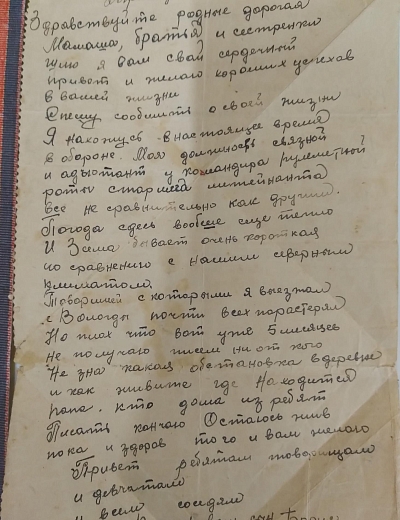 Здравствуйте родные дорогая
Мамаша, братья и сестренки
шлю я вам свой сердечный
привет и желаю хороших успехов
в вашей жизни
Спешу сообщить о своей жизни
Я нахожусь в настоящее время
в обороне. Моя должность связной
и адьютант у командира пулеметной
роты старшева лейтенанта
все не сравнительно как другим.
Погода сдесь вообще еще тепло
И Зима бывает очень короткая
по сравнению с нашим северным
климатом.
Товорищей с которыми я выезжал
с Вологды почти всех порастерял
Но плох что вот уже 5 месяцев
не получаю писем ни от кого
Не зна какая обстановка в деревне
и как живите где Находится
папа. кто дома из ребят
Писать кончаю Остаюсь жив
пока и здоров того и вам желаю
Привет ребятам товорищам
и девчатам
и всем соседям